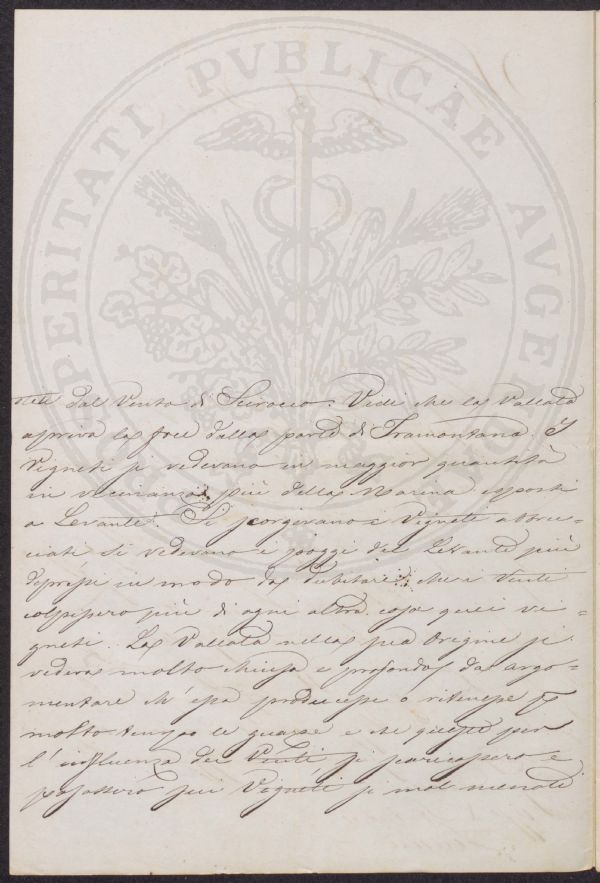 PROSPERITATI PVBLICAE AVGENDAE
dal Vento di Scirocco. Vede che la Vallata
apriva la foce dalla parte di Tramontana. I
Vigneti si vedevano in maggior quantità
in vicinanza più della Marina esposti
a Levante. Si scorgevano Vigneti abbru-
ciati si vedevano i poggi di Levante più
depressi in modo da dubitare che i Venti
colpissero più di ogni altra cosa quei vi-
gneti. La Vallata nella sua Origine si
vedeva molto chiusa e profonda da argo-
mentare ch'essa producesse o ritenesse p
molto tempo le guazze e che queste per
l'influenza dei Venti si scaricassero e
posassero sui Vigneti si mal menati